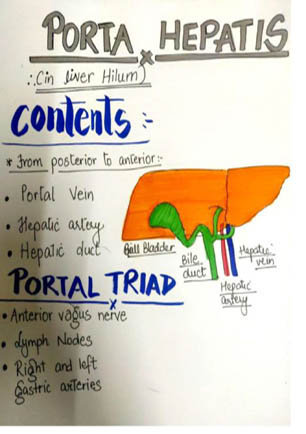 PORTA HEPATIS
∴ (in liver Hilum)
Contents :-
* From posterior to anterior:-
• Portal Vein
• Hepatic artery
• Hepatic duct
Gall Bladder
Bile duct
Hepatic artery
Hepatic vein
PORTAL TRIAD
• Anterior vagus nerve
• Lymph Nodes
• Right and left
gastric arteries